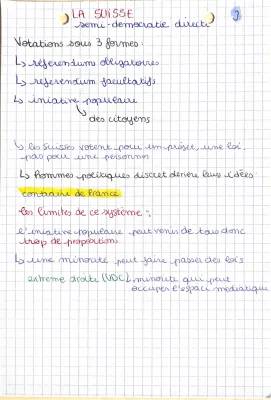 LA SUISSE
semi-démocratie directe
Votations sous 3 formes :
↳ référendum obligatoires
↳ referendum facultatifs
↳ iniative populaire
↳ des citoyens
↳ les Suisses votent pour un projet, une loi,
pas pour une personne
↳ Hommes politiques discret derière leurs idées
contraire de France
les limites de ce système :
l'iniative populaire peut venir de tous donc
trop de proposition
↳ une minorité peut faire passer des lois
extreme droite (UDC) minorité qui peut
occuper l'espace médiatique